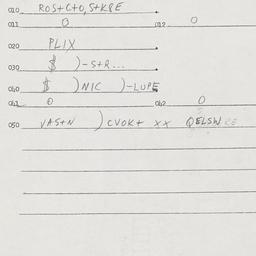 010 ROS+C+O, S+KPE
011 0 012 0
020 PLIX
030 $ )-S+R...
040 $ )NIC )-LUPE
041 0 042 0
050 VAS+N )CVOK+ XX QELSW